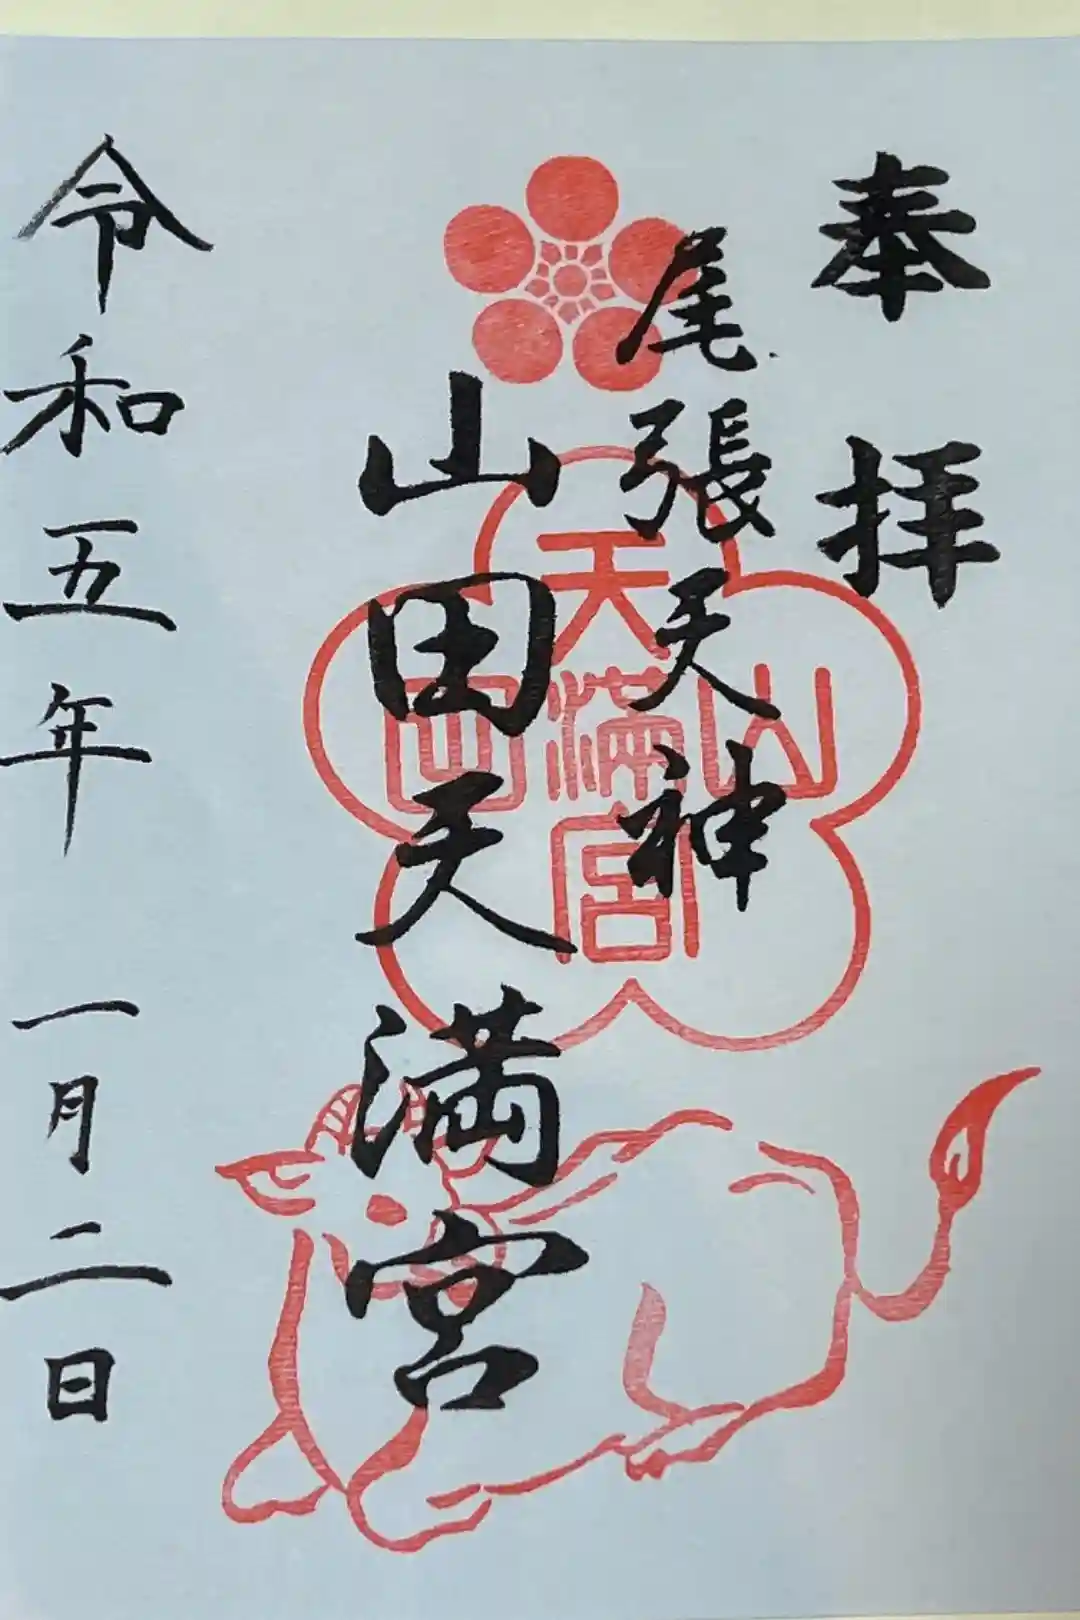 奉拝
尾張天神
山田天満宮
山田天満宮
令和五年一月二日